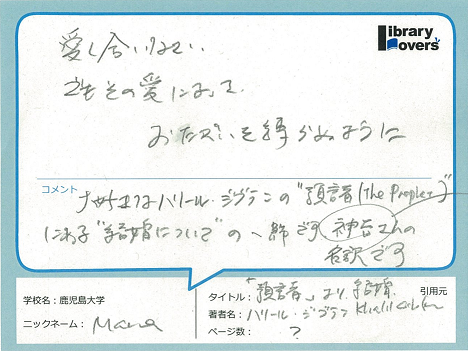 Library Lovers'
愛し合いなさい
でもその愛によって
おたがいを縛らぬように
コメント
ハリール・ジブランの"預言者(The Prophet)"
における"結婚について"の一節です 神谷さんの
名訳です
学校名：鹿児島大学
ニックネーム：Mana
タイトル：「預言者」より 結婚
引用元
著者名：ハリール・ジブラン Khalil
ページ数：?